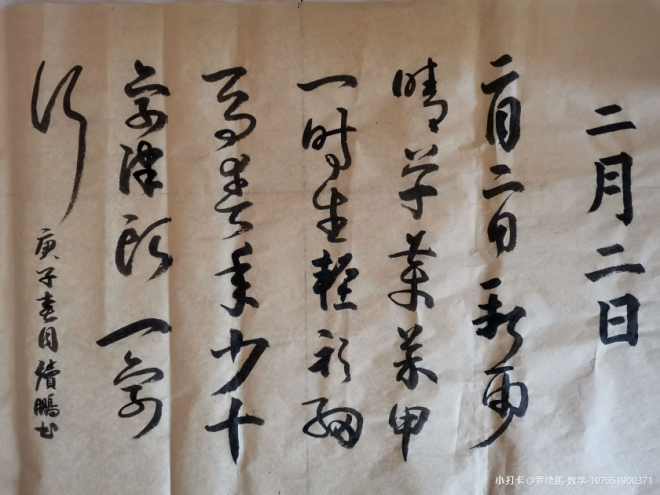 二月二日
二月二日新雨
晴草芽菜甲
一时生轻衫细
马春年少十
字津头一字
行
庚子春月续鹏书
小打卡 @罗续鹏-数学-107551900371